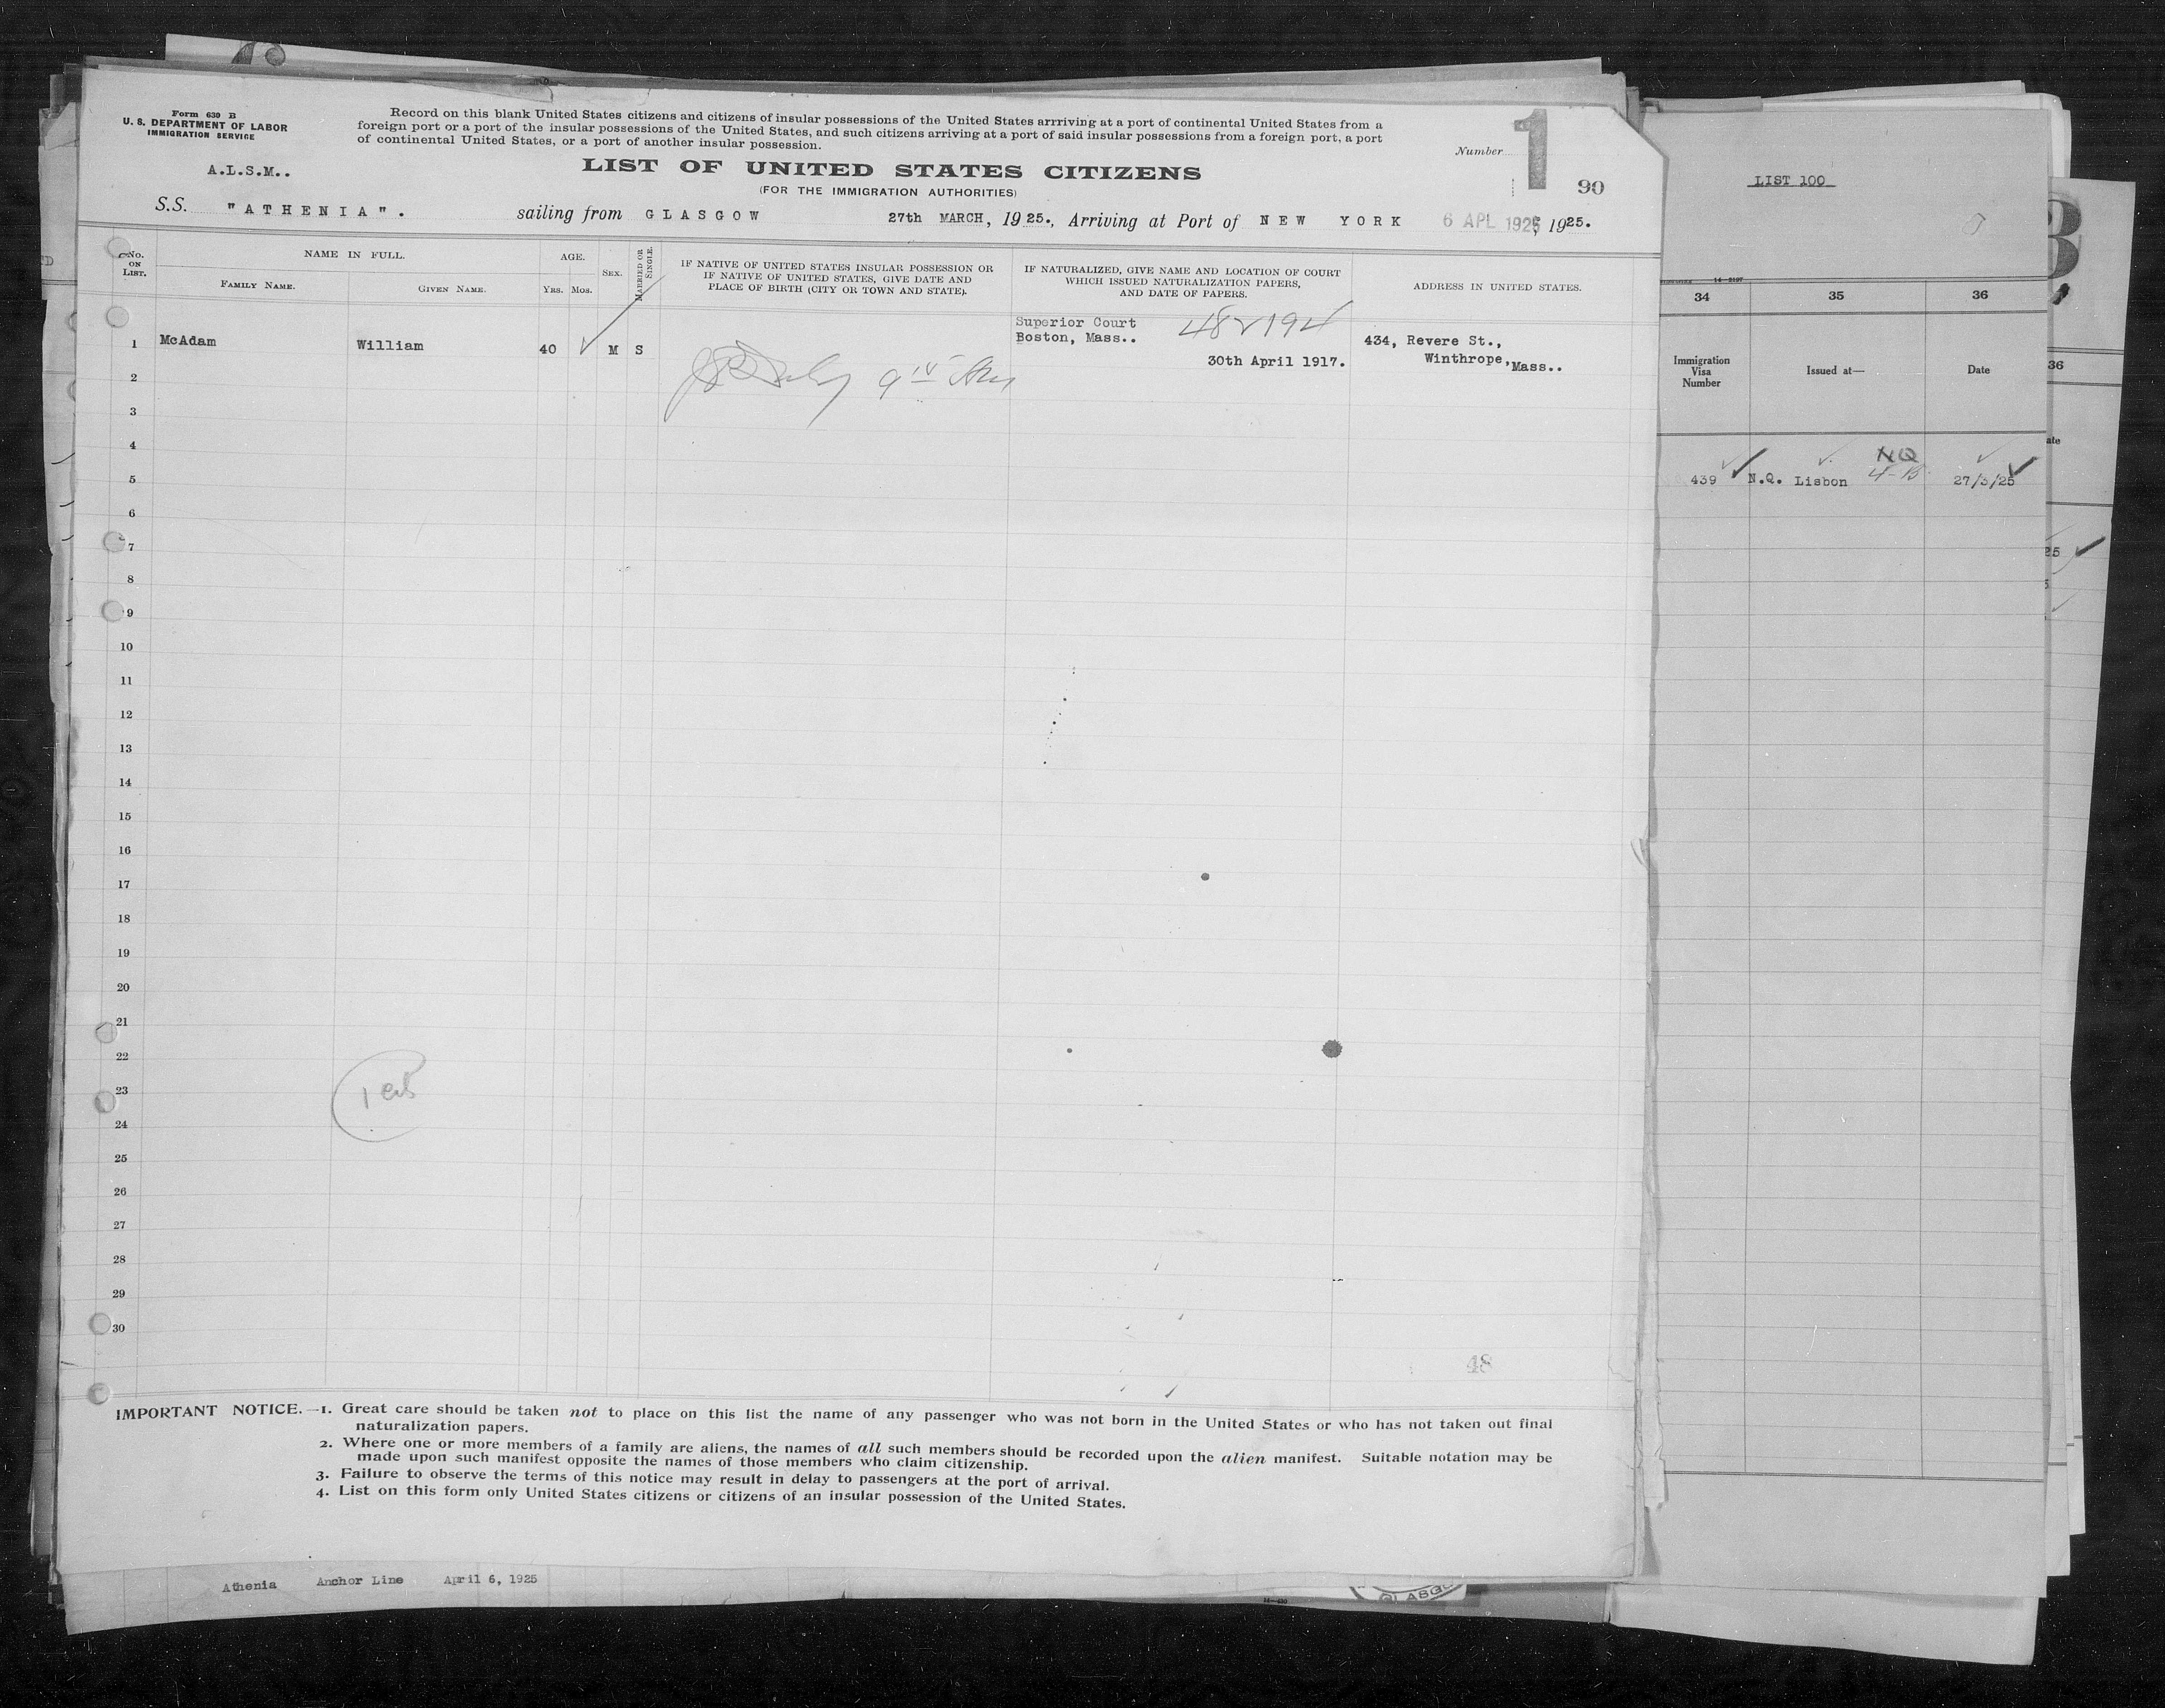 Form 630 B
U. S. DEPARTMENT OF LABOR
IMMIGRATION SERVICE
A.L.S.M..
Record on this blank United States citizens and citizens of insular possessions of the United States arrriving at a port of continental United States from a
foreign port or a port of the insular possessions of the United States, and such citizens arriving at a port of said insular possessions from a foreign port, a port
of continental United States, or a port of another insular possession.
LIST OF UNITED STATES CITIZENS
(FOR THE IMMIGRATION AUTHORITIES)
Number 1
90
S.S. "ATHENIA". sailing from GLASGOW 27th MARCH, 1925., Arriving at Port of NEW YORK 6 APL 1925, 1925.
No. ON LIST.
NAME IN FULL.
FAMILY NAME.
GIVEN NAME.
AGE.
YRS. MOS.
SEX.
MARRIED OR SINGLE.
IF NATIVE OF UNITED STATES INSULAR POSSESSION OR
IF NATIVE OF UNITED STATES, GIVE DATE AND
PLACE OF BIRTH (CITY OR TOWN AND STATE).
IF NATURALIZED, GIVE NAME AND LOCATION OF COURT
WHICH ISSUED NATURALIZATION PAPERS,
AND DATE OF PAPERS.
ADDRESS IN UNITED STATES.
1 McAdam William 40 M S
Superior Court
Boston, Mass..
30th April 1917.
434, Revere St.,
Winthrope, Mass..
2
3
4
5
6
7
8
9
10
11
12
13
14
15
16
17
18
19
20
21
22
23
24
25
26
27
28
29
30
48
IMPORTANT NOTICE.—1. Great care should be taken not to place on this list the name of any passenger who was not born in the United States or who has not taken out final
naturalization papers.
2. Where one or more members of a family are aliens, the names of all such members should be recorded upon the alien manifest. Suitable notation may be
made upon such manifest opposite the names of those members who claim citizenship.
3. Failure to observe the terms of this notice may result in delay to passengers at the port of arrival.
4. List on this form only United States citizens or citizens of an insular possession of the United States.
Athenia Anchor Line April 6, 1925
LIST 100
34 35 36
Immigration
Visa
Number
Issued at—
Date
NQ
439 N.Q. Lisbon 27/3/25
36